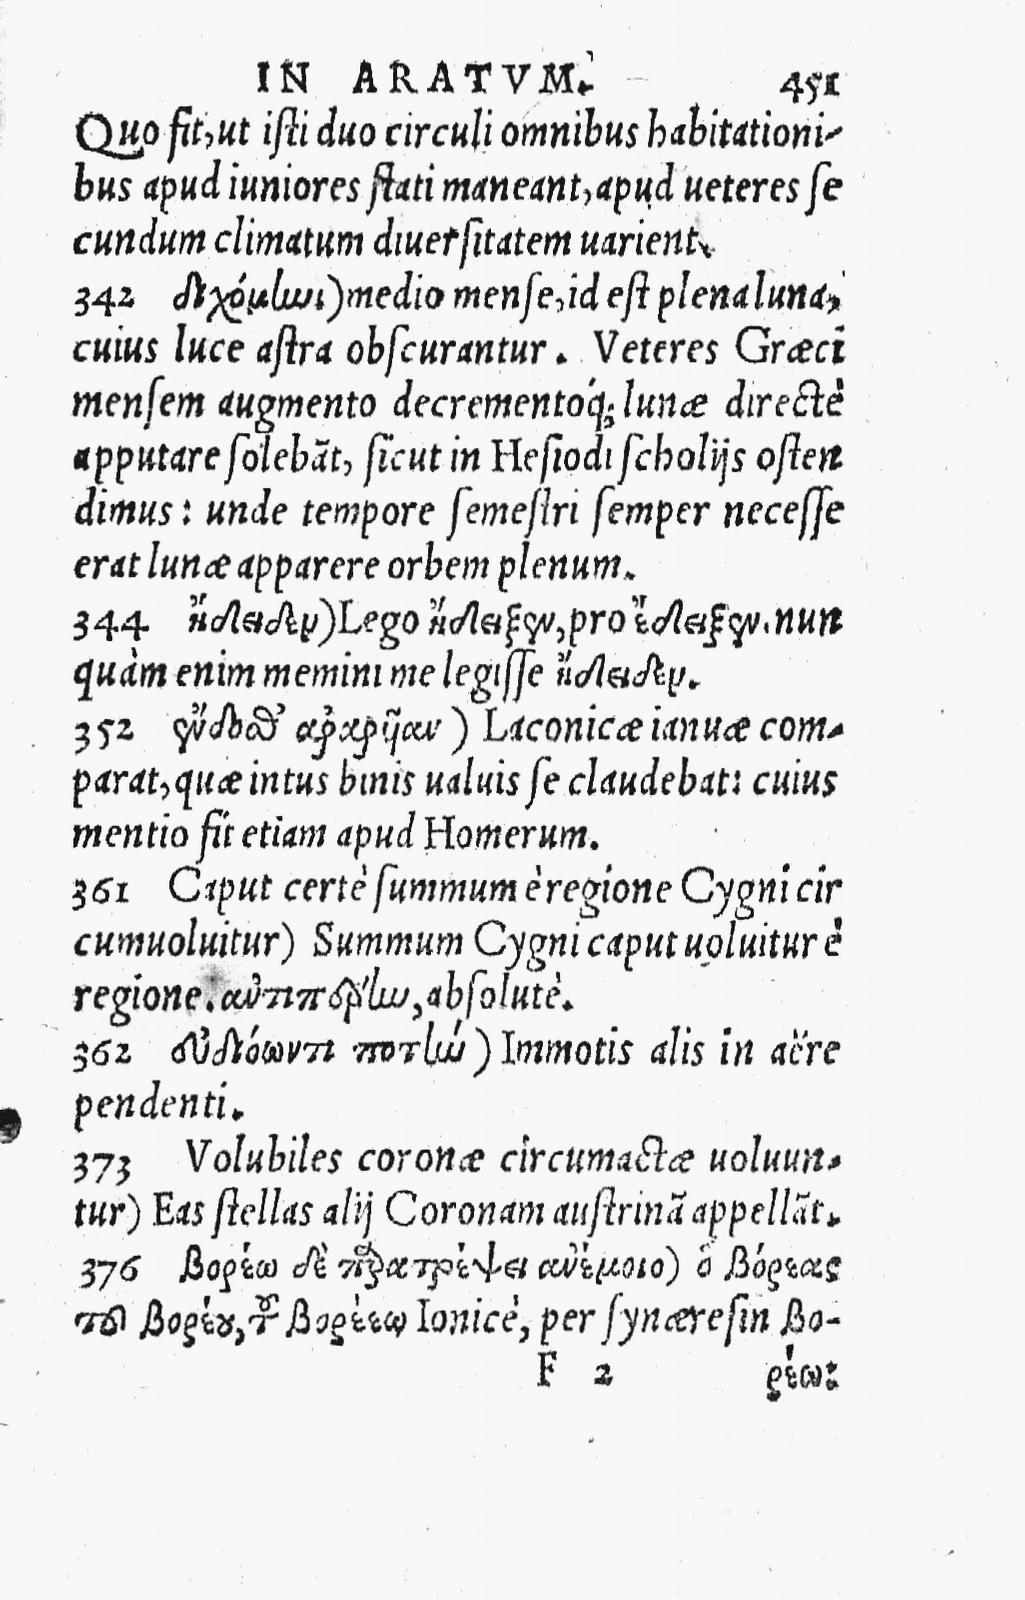 IN ARATVM. 451
Quo fit, ut iſti duo circuli omnibus habitationi-
bus apud iuniores ſtati maneant, apud ueteres ſe
cundum climatum diuerſitatem uarient.
342 διχόμηνι) medio menſe, id eſt plena luna,
cuius luce aſtra obſcurantur. Veteres Græci
menſem augmento decrementoq́; lunæ directè
apputare ſolebãt, ſicut in Heſiodi ſcholijs oſten
dimus: unde tempore ſemeſtri ſemper neceſſe
erat lunæ apparere orbem plenum.
344 Lego pro nun
quàm enim memini me legiſſe
352 ἔνδοθ' ἀραρῆαν) Laconicæ ianuæ com-
parat, quæ intus binis ualuis ſe claudebat: cuius
mentio fit etiam apud Homerum.
361 Caput certè ſummum è regione Cygni cir
cumuoluitur) Summum Cygni caput uoluitur è
regione. ἀντιπέρην, abſolutè.
362 εὐδιόωντι ποτὴν) Immotis alis in aëre
pendenti.
373 Volubiles coronæ circumactæ uoluun-
tur) Eas ſtellas alij Coronam auſtrinã appellãt.
376 βορέω δὲ παρατρέψει ἀνέμοιο) ὁ βόρεας
τοῦ βορέου, τοῦ βορέεω Ionicè, per ſynæreſin βο-
F 2 ρέω: